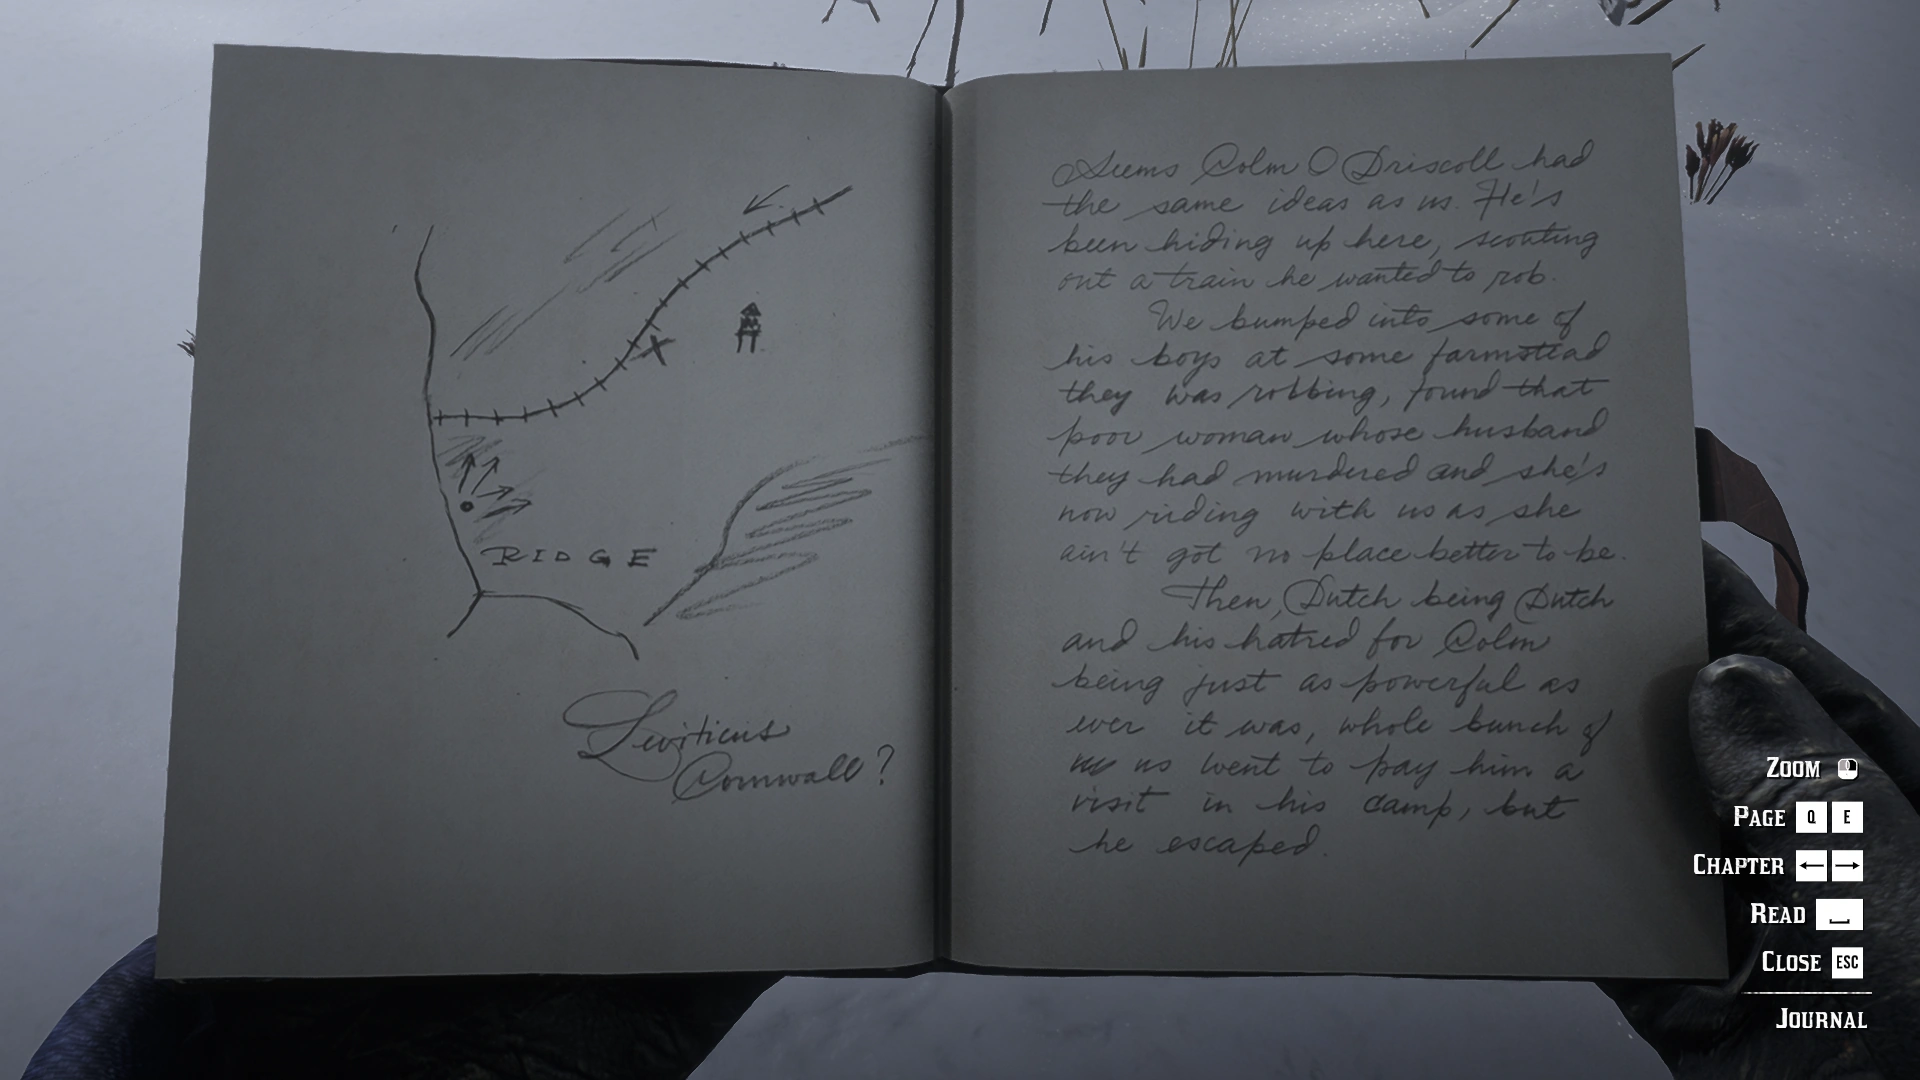 RIDGE
Leviticus
Cornwall?
Seems Colm O Driscoll had
the same ideas as us. He's
been hiding up here, scouting
out a train he wanted to rob.
We bumped into some of
his boys at some farmstead
they was robbing, found that
poor woman whose husband
they had murdered and she's
now riding with us as she
ain't got no place better to be.
Then, Dutch being Dutch
and his hatred for Colm
being just as powerful as
ever it was, whole bunch of
us went to pay him a
visit in his camp, but
he escaped.
ZOOM
PAGE Q E
CHAPTER ← →
READ
CLOSE ESC
JOURNAL